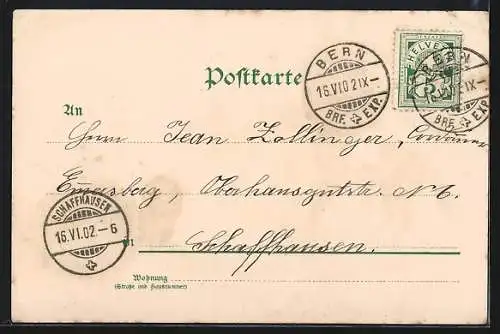 BERN
16.VI.02.IX-
BRF. EXP.
HELVETIA
5
BERN
IX-
BRF. EXP.
Postkarte
An
Herrn Jean Zollinger,
Emmersberg, No 6.
SCHAFFHAUSEN
16.VI.02.-6
in Schaffhausen.
Wohnung
(Straße und Hausnummer)